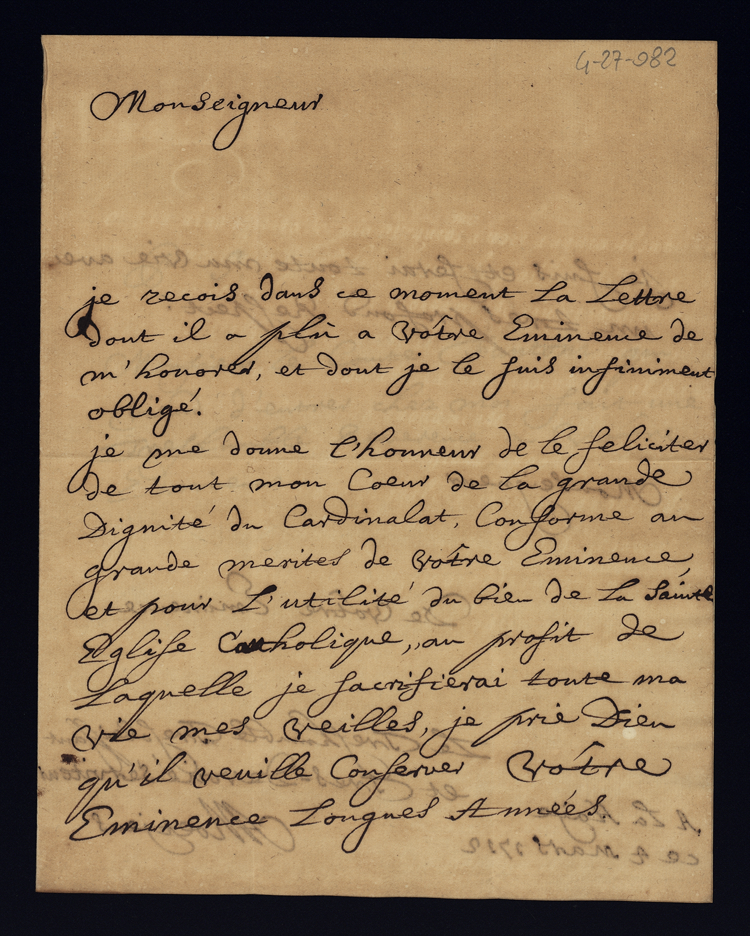 4-27-082
Monseigneur
je recois dans ce moment La Lettre
dont il a plû a vôtre Eminence de
m'honorer, et dont je le suis infiniment
obligé.
je me donne l'honneur de le feliciter
de tout mon Coeur de la grande
Dignité du Cardinalat, Conforme au
grande merites de vôtre Eminence,
et pour L'utilité du bien de La Sainte
Eglise Catholique, au profit de
Laquelle je sacrifierai toute ma
vie mes veilles, je prie Dieu
qu'il veuille Conserver vôtre
Eminence Longues Années.